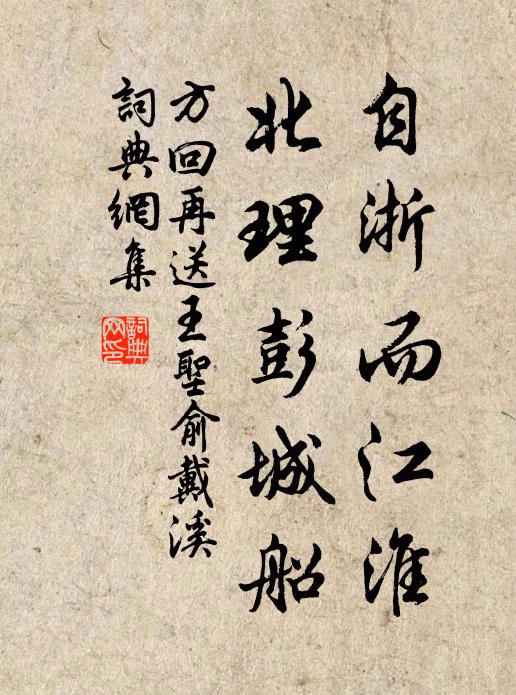 自浙而江淮
北理彭城船
方回再送王聖俞戴溪
詞典網集
詞典網印